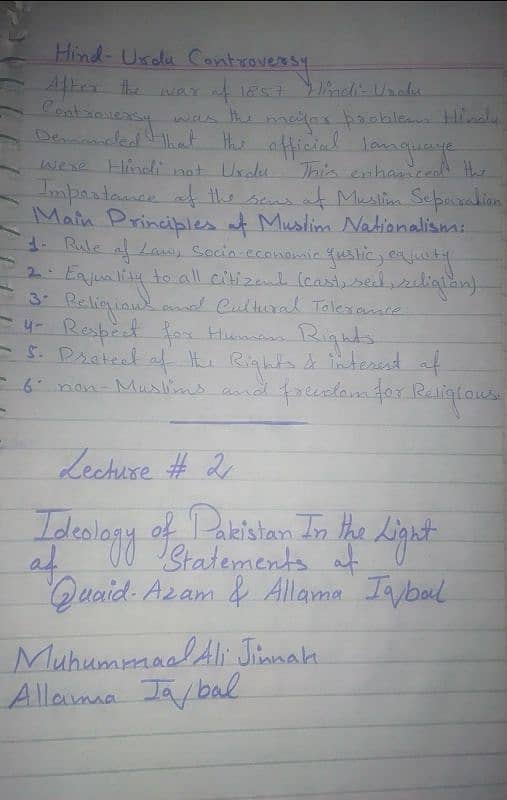 Hind-Urdu Controversy
After the war of 1857 Hindi-Urdu
Controversy was the major problem Hindu
Demanded that the official language
were Hindi not Urdu. This enhanced the
Importance of the sens of Muslim Separation
Main Principles of Muslim Nationalism:
1- Rule of Law, socio-economic justic, equity
2- Equality to all citizens (cast, sect, religion)
3- Religious and Cultural Tolerance
4- Respect for Human Rights
5. Protect of the Rights & interest of
6. non-Muslims and freedom for Religious.
Lecture # 2
Ideology of Pakistan In the Light
of Statements of
Quaid-Azam & Allama Iqbal
Muhummad Ali Jinnah
Allama Iqbal